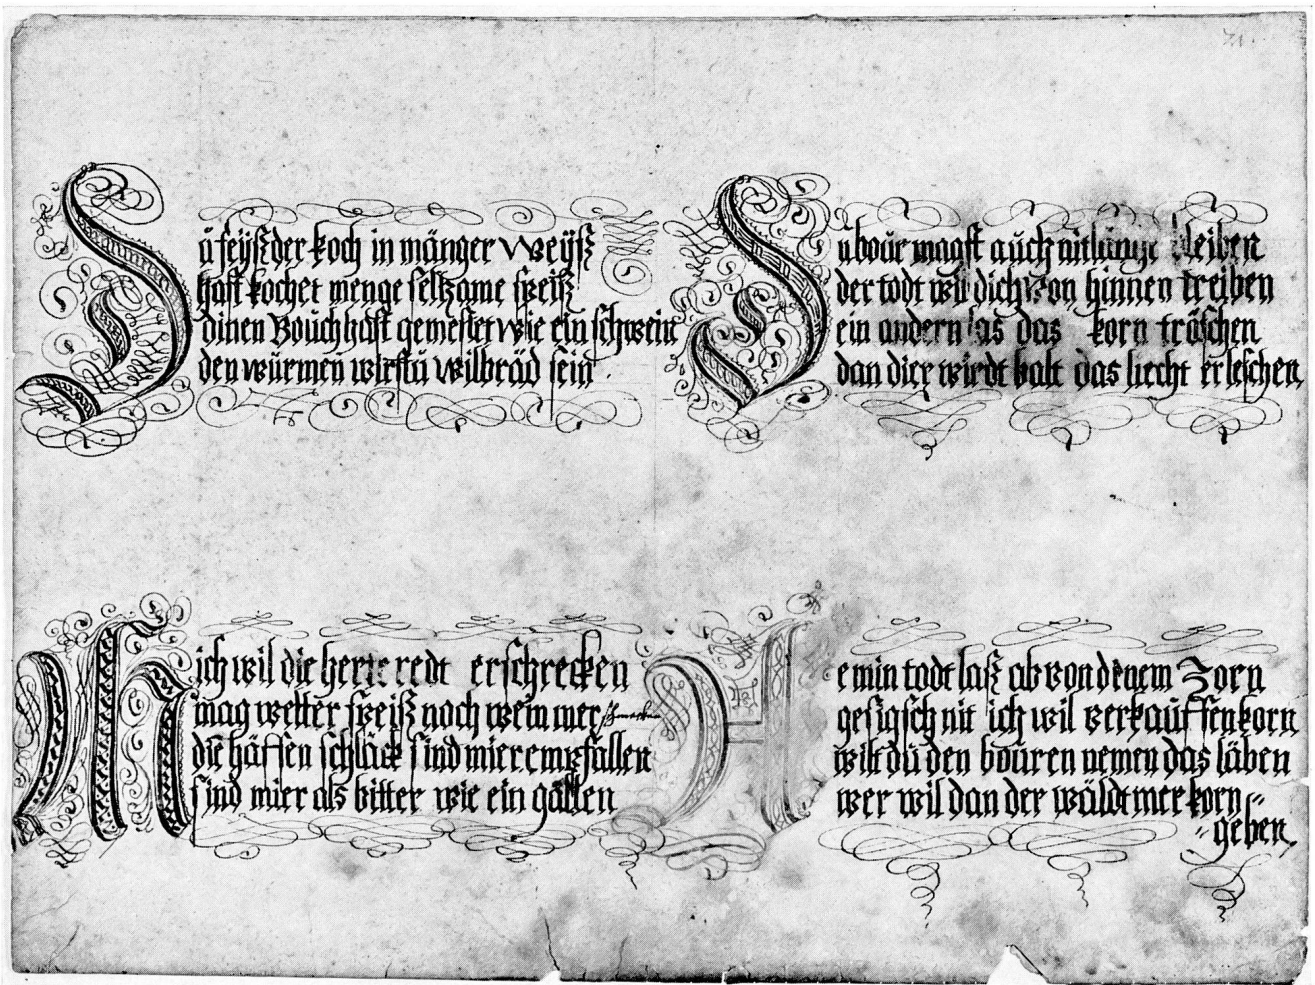 Dů feÿster koch in mänger Weÿß
haſt kochet menge ſeltzame ſpeiß
dinen Bouch haſt gemeſtet Wie ein ſchwein
den würmen wirſtů wilbräd ſein
Dů boůr magſt auch nit lange bleiben
der todt wil dich von hinnen treiben
ein andern las das korn tröſchen
dan dier wirdt balt das liecht erleſchen
Mich wil die herte redt erſchrecken
mag wetter ſpeiß noch wein mer ſchmecken
die häffen ſchläck ſind mier empfallen
ſind mier als bitter wie ein gällen
He min todt laß ab von denem Zorn
geſigſch nit ich wil verkauffen korn
wilt dů den boůren nemen das läben
wer wil dan der wäldt mer korn
geben